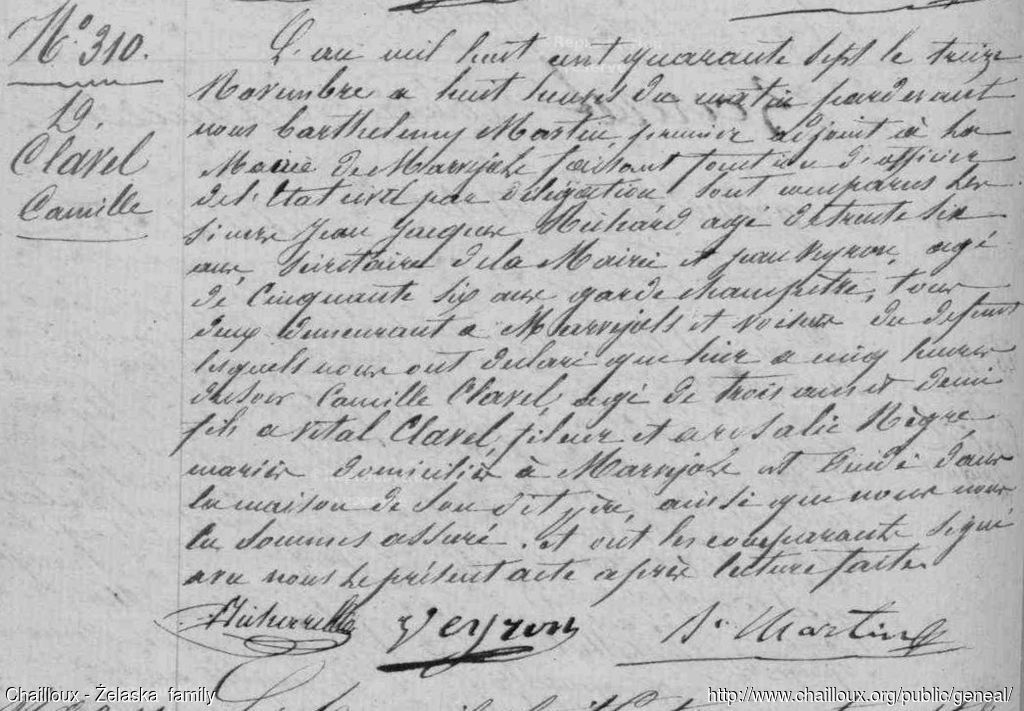 N.º 310.
D.
Clavel
Camille
L'an mil huit cent quarante sept le treize
Novembre a huit heures du matin pardevant
nous Barthelemy Martin, premier adjoint à la
Mairie de Marvejols faisant fonction d'officier
de l'Etat civil par délégation, sont comparus les
sieurs Jean Jacques agé de trente six
ans, Sécrétaire de la Mairie et paul Veyron, agé
de Cinquante six ans garde champêtre, tous
deux demeurant a Marvejols et voisins du défunt
lesquels nous ont déclaré que hier a cinq heures
du soir Camille Clavel, agé de trois ans et demi
fils a vital Clavel, fileur et a rosalie Nègre,
mariés domiciliés à Marvejols est décédé dans
la maison de son dit père, ainsi que nous nous
en sommes assuré. et ont les comparants signé
avec nous le présent acte après lecture faite.
Veyron
B. Martin
Chailloux - Żelaska family
http://www.chailloux.org/public/geneal/